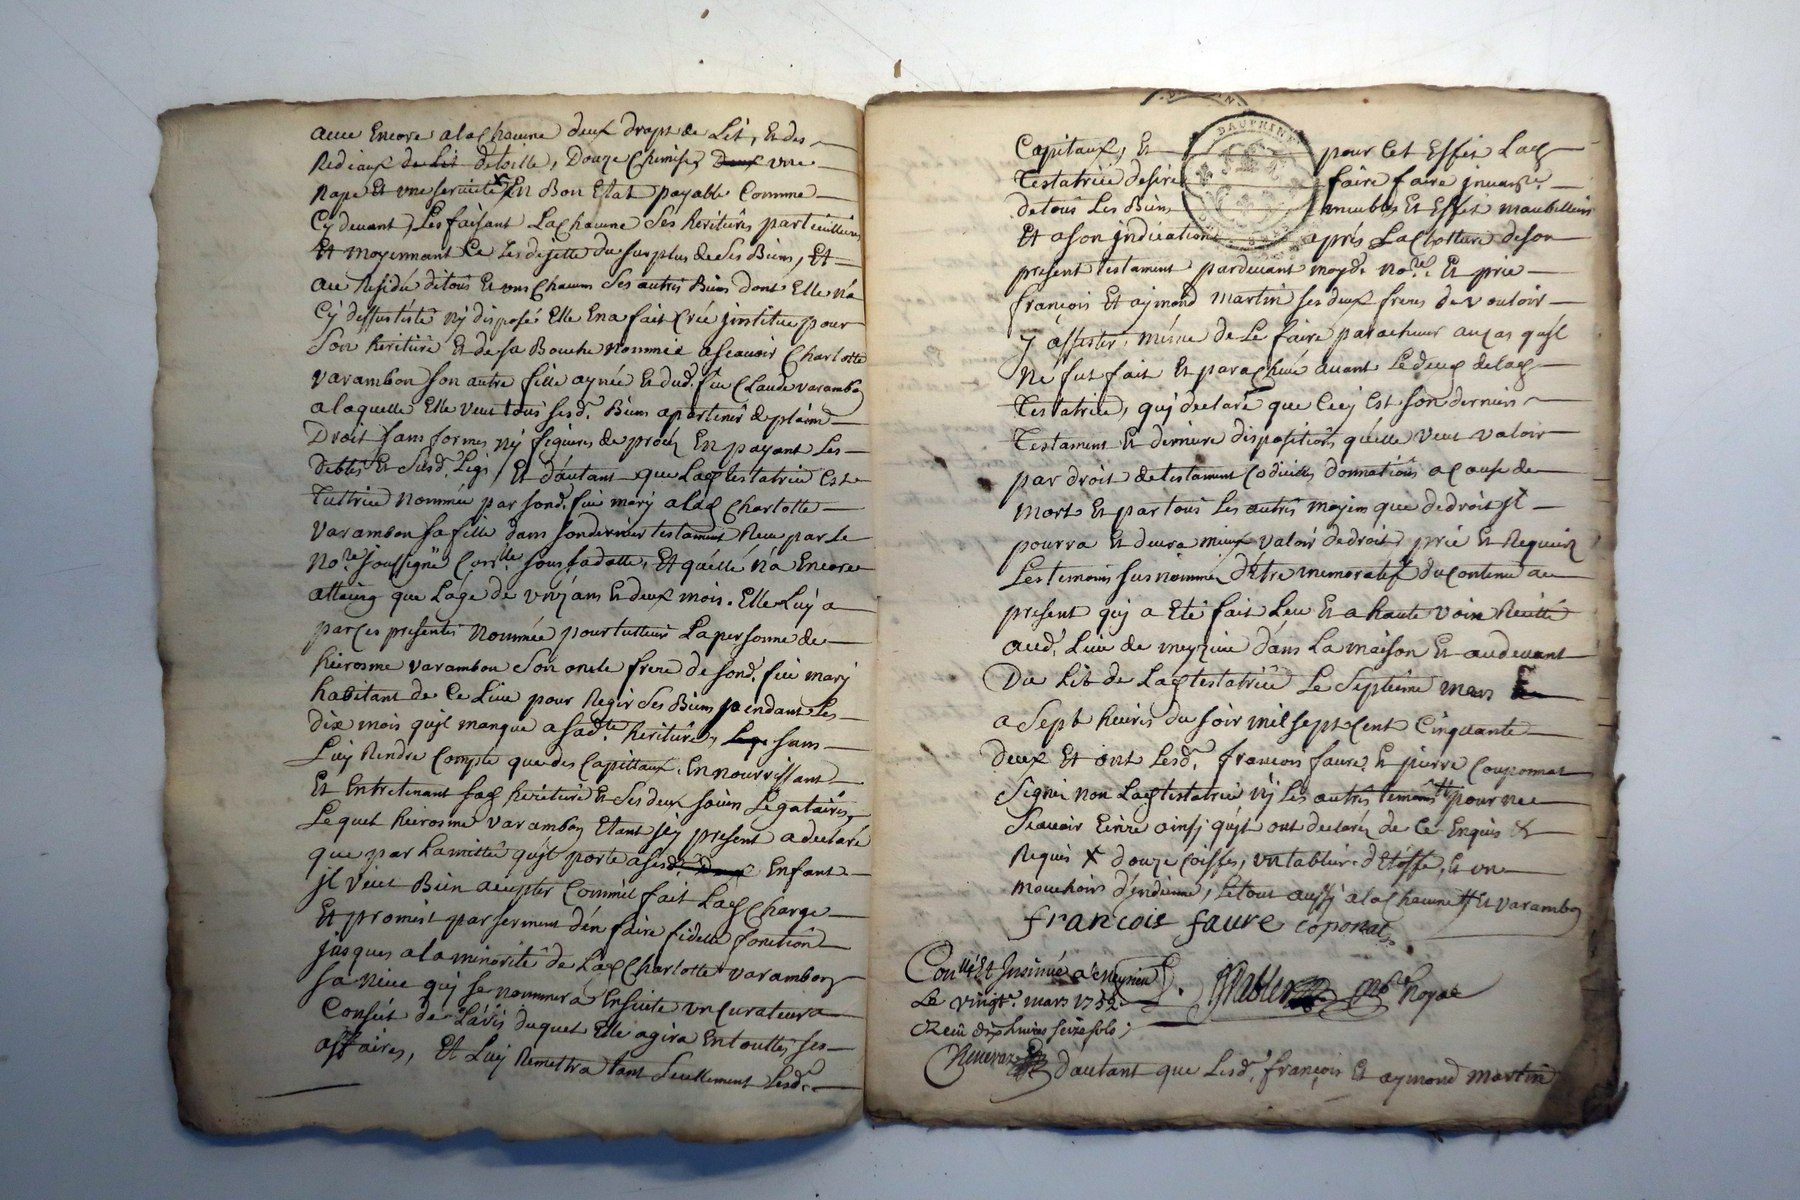 avec Encore a lad chacune deux draps de Lit, Et des
Rediaux de Lit detoille, Douze Chemises Deux une
Nape Et une serviette x En Bon Etat payable Comme
Cy devant, Les faisant Lad chacune Ses heritières particullieres
Et moyennant Ce Les dejette du surplus de Ses Biens, Et
au Residu de tous Et uns Chacuns Ses autres Biens dont Elle n'a
Cy dessus testé ny disposé Elle En a fait Créé jnstitue pour
Son heritiere Et de sa Bouche nommée a scavoir Charlotte
varambon son autre fille aynée Et dud. feu Claude varambon
a laquelle Elle veut tous sesd. Biens apartenir de plein
Droit sans formes ny figures de procès En payant Les
debtes Et Susd. Legs, Et d'autant que Lad testatrice Est
Tuttrice nommée par sond. feu mary a lad Charlotte
varambon sa fille dans son dernier testament Receu par Le
No.re soussigné Con.llé sous sa datte, Et qu'elle n'a Encore
atteing que L'age de vingt ans Et deux mois. Elle Luy a
par Ces presentes nommée pour tutteur La personne de
hierosme varambon Son oncle frere de sond. feu mary
habitant de Ce Lieu pour Regir Ses Biens pendant Les
Dix mois qu'jl manque a sad.te heritiere, sans
Luy Rendre Compte que des Capittaux. En nourrissant
Et Entretenant sad heritiere Et Ses deux soeurs Legataires,
Lequel hierosme varambon Etant jcy present a declaré
que par Lamittié qu'jl porte a sesd. Deux Enfans
jl veut Bien accepter Comme fait Lad Charge
Et promis par serment d'en faire fidelle fonction
jusques a la minorité de Lad Charlotte varambon
sa niece quj se nommera Ensuite un Curateur a
Conseil de L'avis duquel Elle agira En touttes ses
affaires, Et Luy Remettra tant Seullement Lesd.
Capitaux, Et pour Cet Effet Lad
Testatrice desire faire faire jnvaire.
de tous Les Biens meubles Et Effets maubelliers
Et a son jndication apres La Clotture de son
present testament pardevant moyd. no.re Et prie
françois Et aymond martin ses deux freres de vouloir
y assister, même de Le faire parachever au cas qu'jl
Ne fut fait Et parachevé avant Le deces de lad
Testatrice, quj declare que Cecy Est son dernier
Testament Et derniere disposition qu'elle veut valoir
par droit de testament Codicilles donnations a cause de
Mort Et par tous Les autres moyens que de droit jl
pourra Et devra mieux valoir de droit, prié Et Requis
Les temoins susnommés d'être memoratifs du Contenu au
present quj a Eté fait Leu Et a haute voix Recitté
aud. Lieu de meyzieu dans La maison Et audevant
Du Lit de Lad testatrice Le Septieme mars
a Sept heures du soir mil sept Cent Cinquante
deux Et ont Lesd. françois faure, Et pierre Couponnat
Signé non Lad testatrice ny Les autres temoins # pour ne
Scavoir Ecrire ainsj qu'jl ont declarés de Ce Enquis Et
Requis x douze coiffes, un tablier d'Etoffe, Et un
mouchoir d'jndienne, Le tout aussj a lad chacune # Et varambon
francois faure coponat
Con.llé Et Insinué a Meyzieu
Le vingt.e mars 1752.
Receu dix Livres seize sols;
no.re Royal
d'autant que Lesd. françois Et aymond martin
DAUPHINE